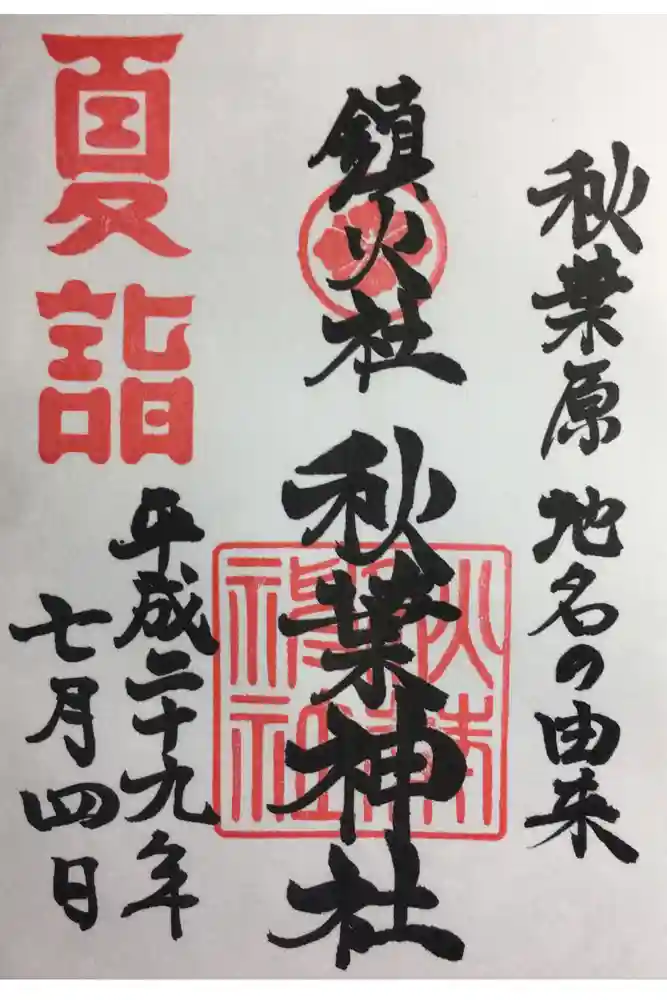 秋葉原 地名の由来
鎮火社 秋葉神社
夏詣
平成二十九年
七月四日